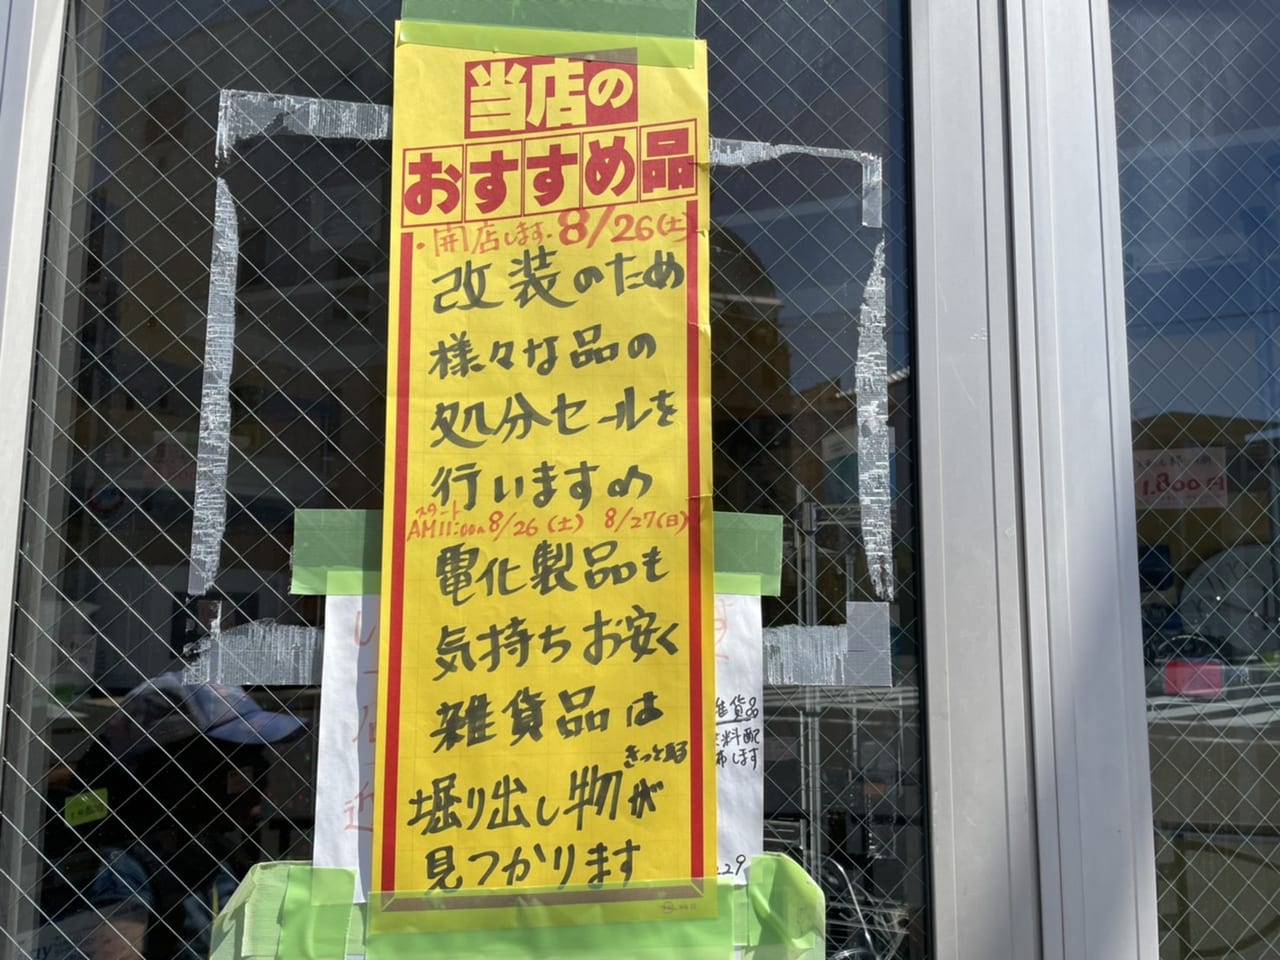 当店の
おすすめ品
・開店します. 8/26(土)
改装のため
様々な品の
処分セールを
行いますめ
スタート
AM11:00〜 8/26(土) 8/27(日)
電化製品も
気持ちお安く
雑貨品は
きっと
堀り出し物が
見つかります
貨品
料配
布します
29